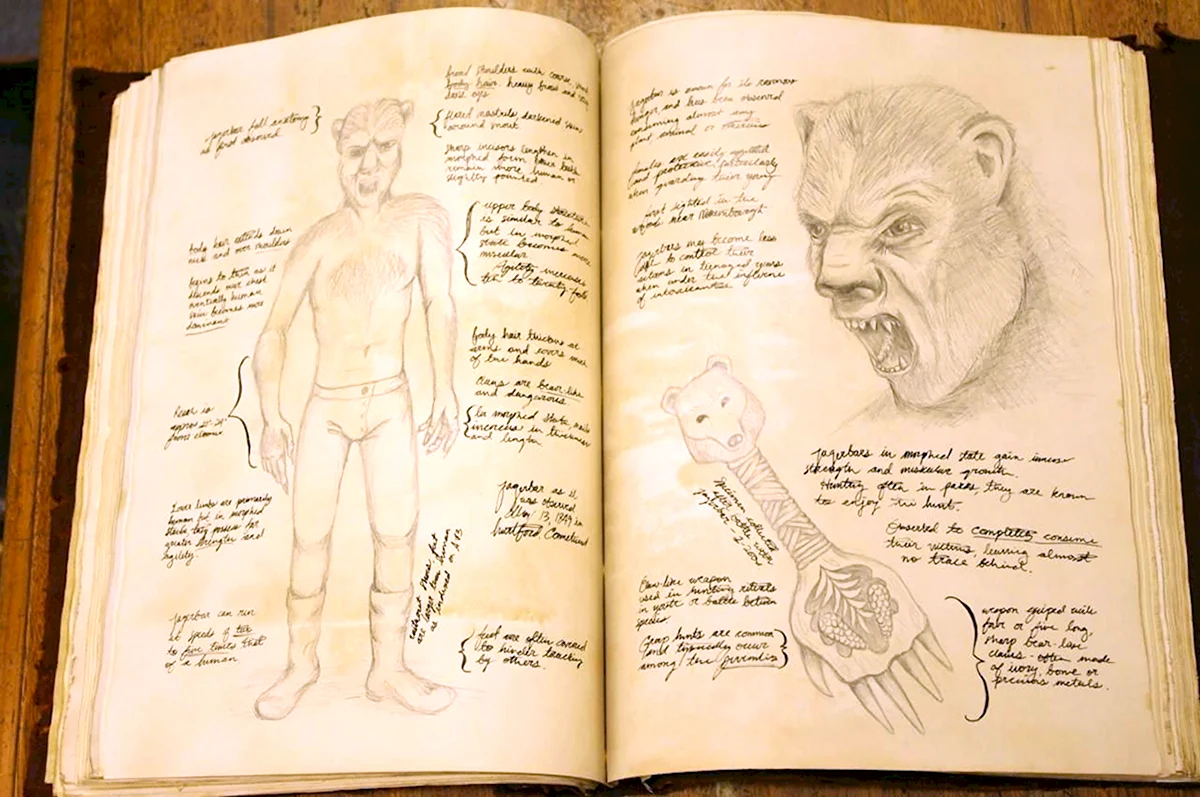 jagerbar full anatomy
as first observed.
broad shoulders with coarse,
body hair. heavy brow and
eyes
flared nostrils, darkened skin
around snout.
sharp incisors lengthen in
morphed form. lower teeth
remain more human or
slightly pointed.
upper body structure
is similar to human
but in morphed
state becomes more
muscular
Agility increases
ten to twenty-fold
body hair extends down
neck and over shoulders
begins to thin as it
descends over chest
eventually human
skin becomes more
dominant
body hair thickens at
arms and covers much
of the hands
Claws are bear-like
and dangerous.
In morphed state, nails
increase in thickness
and length
Reach is
approx
from
Lower limbs are primarily
human but in morphed
state they possess far
greater strength and
agility.
jagerbar as it
was observed
May 13, 1849 in
Hartford, Connecticut
jagerbar can run
at speeds of two
to five times that
of a human.
are larger than human
as indicated on
feet are often covered
to hinder tracking
by others.
jagerbar is known for its ravenous
hunger and has been observed
consuming almost any
plant, animal or otherwise
females are easily agitated
and protective, particularly
when guarding their young
first sighted in the
woods near
jagerbars may become less
able to control their
actions in teenaged years
when under the influence
of intoxicants
jagerbars in morphed state gain immense
strength and muscular growth.
Hunting often in packs, they are known
to enjoy the hunt.
Observed to completely consume
their victims, leaving almost
no trace behind.
Specimen collected
after battle with
jagerbar
Claw-like weapon
used in hunting rituals
in youth or battle between
species.
Group hunts are common
and typically occur
among the
weapon equiped with
four or five long,
sharp bear-like
claws - often made
of ivory, bone or
precious metals.